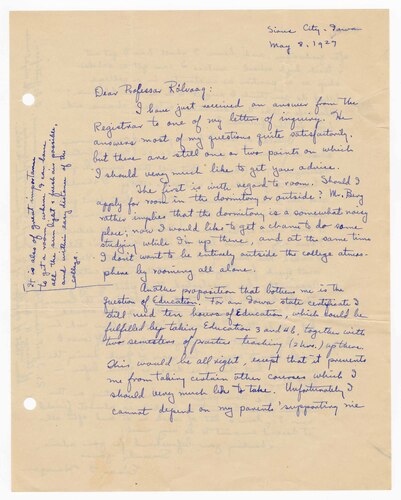 Sioux City, Iowa
May 8, 1927
Dear Professor Rölvaag:
I have just received an answer from the
Registrar to one of my letters of inquiry. He
answers most of my questions quite satisfactorily,
but there are still one or two points on which
I should very much like to get your advice.
The first is with regard to room. Should I
apply for room in the dormitory or outside? Mr. Berg
rather implies that the dormitory is a somewhat noisy
place; now I would like to get a chance to do some
studying while I'm up there, and at the same time
I don't want to be entirely outside the college atmos-
phere by rooming all alone.
It is also of great importance
to get a room where I can have
all the sun light & pure air possible,
and within easy distance of the
college.
Another proposition that bothers me is the
question of Education. For an Iowa state certificate I
still need ten hours of Education, which could be
fulfilled by taking Education 3 and 4b, together with
two semesters of practice teaching (2 hrs.) up there.
This would be all right, except that it prevents
me from taking certain other courses which I
should very much like to take. Unfortunately I
cannot depend on my parents' supporting me